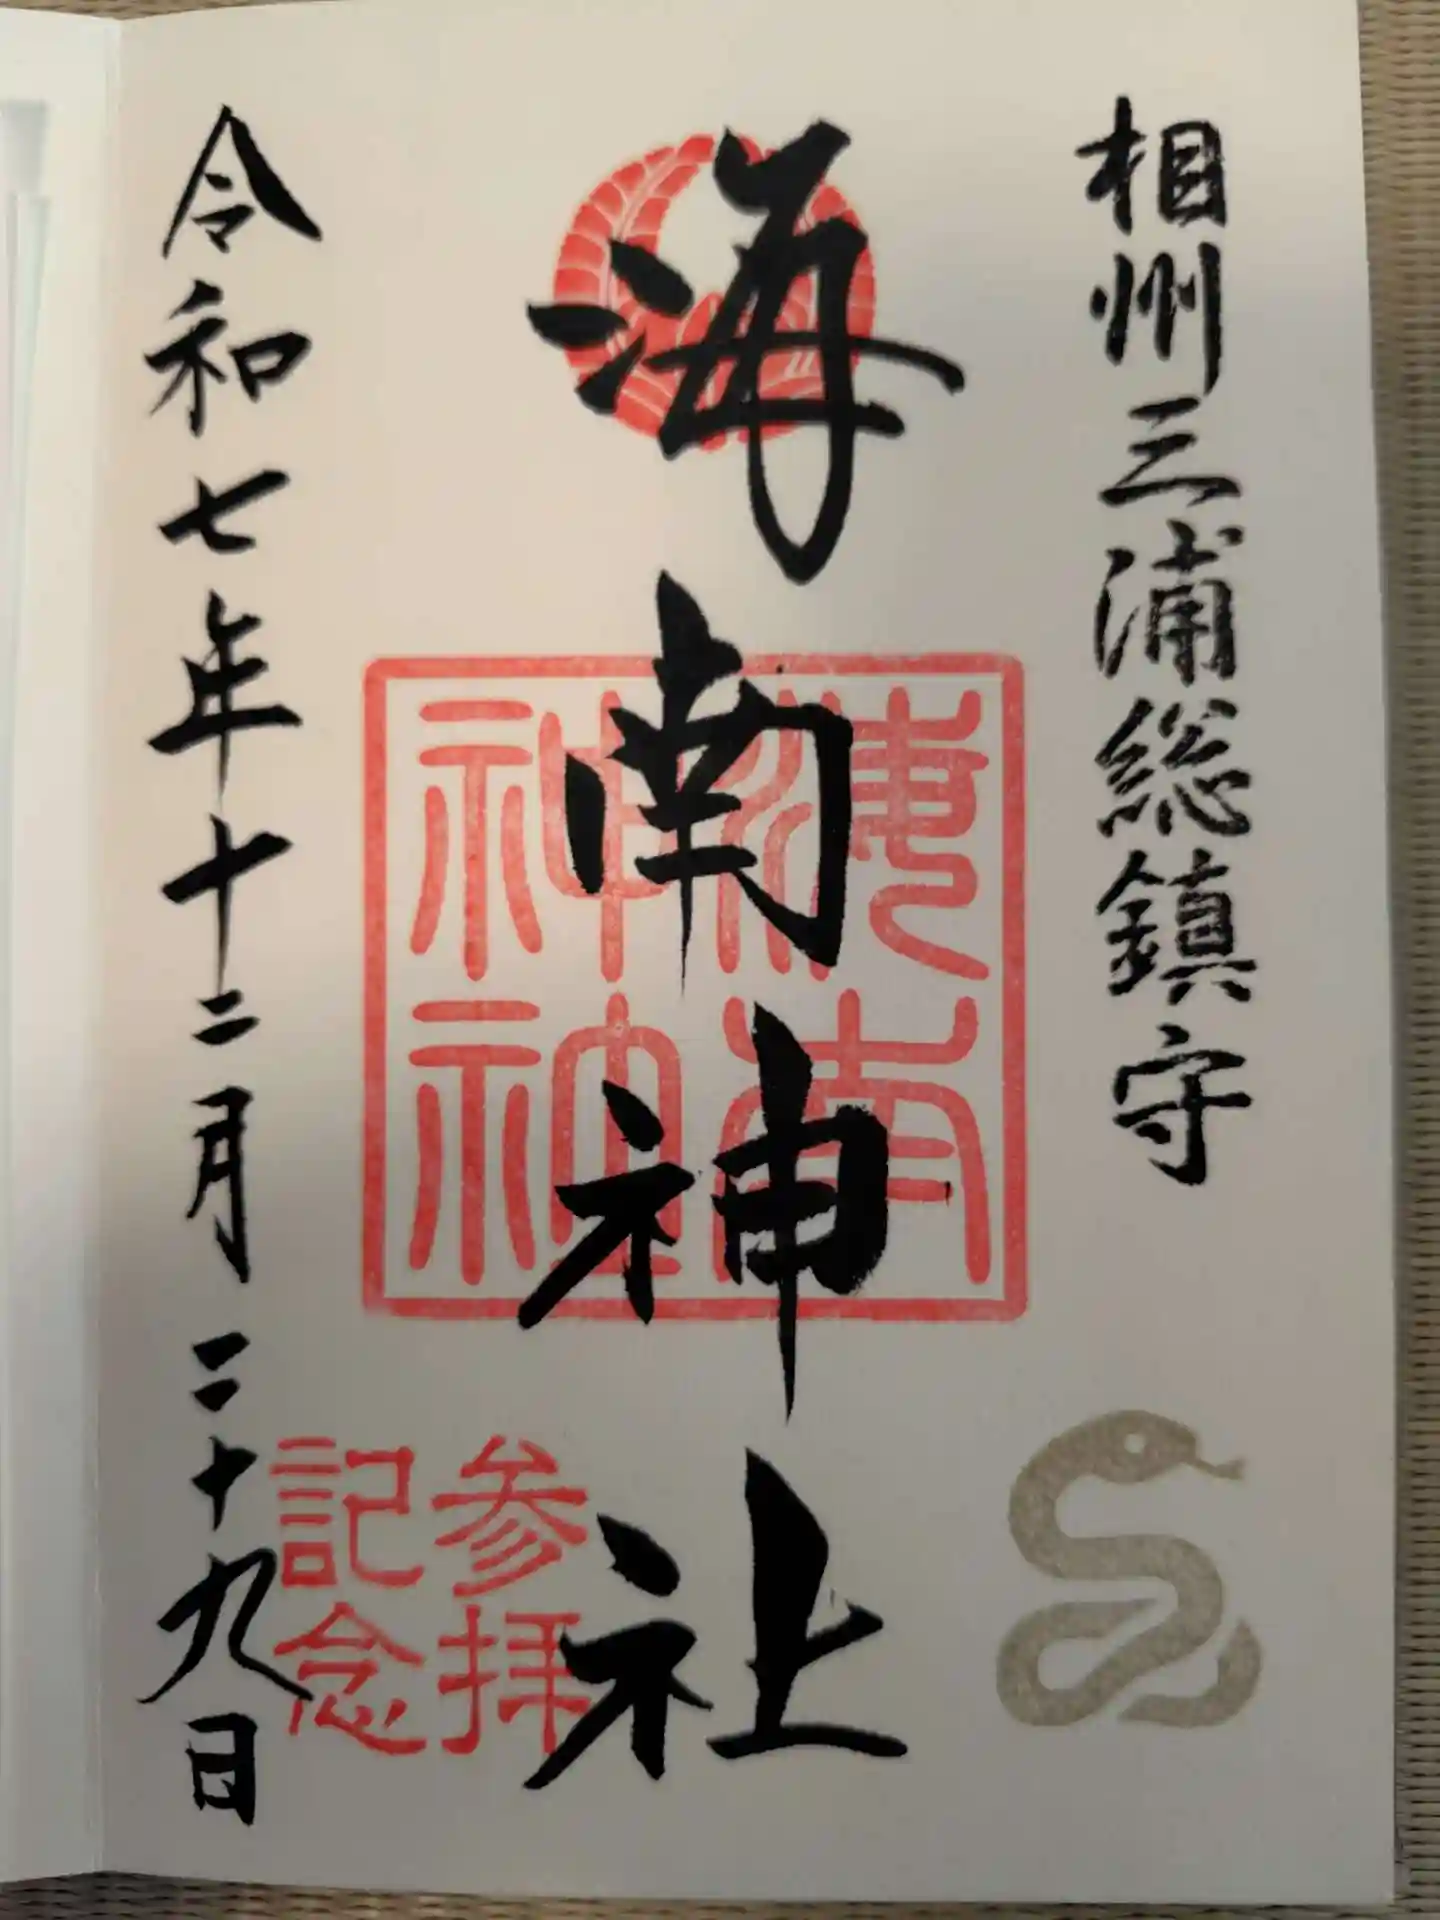 相州三浦総鎮守
海南神社
海南神社
参拝
記念
令和七年十二月二十九日